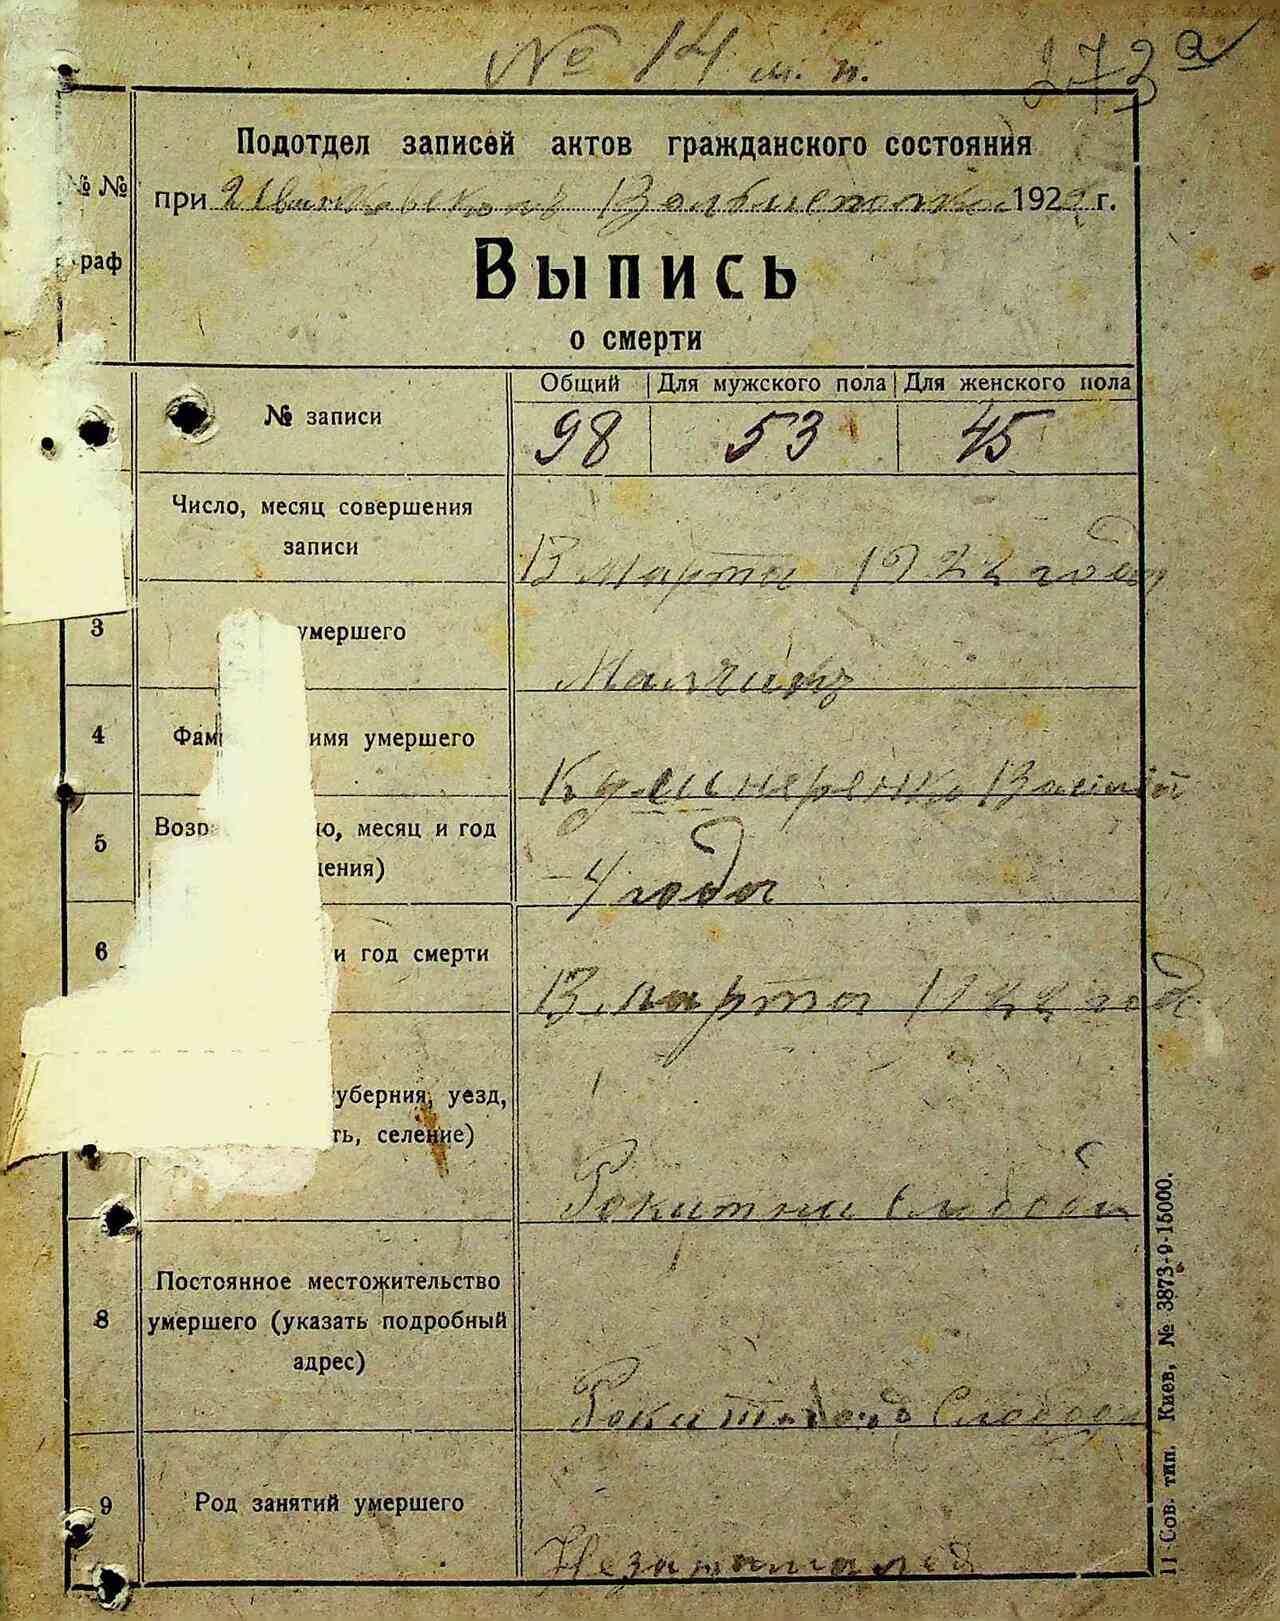 № 14 м. п.
273 а
Подотдел записей актов гражданского состояния
№ №
при 192 г.
раф
Выпись
о смерти
Общий Для мужского пола Для женского пола
№ записи
98 53 45
Число, месяц совершения
записи
13 марта 1922 года
3
умершего
4
Фам имя умершего
Кушнеренко
5
Возр ю, месяц и год
ения)
4 года
6
и год смерти
13 марта 1922 год
уберния, уезд,
ть, селение)
Рокитна Слобода
Постоянное местожительство
8
умершего (указать подробный
адрес)
Слобода
9
Род занятий умершего
11 Сов. тип. Киев, № 3873-9-15000.